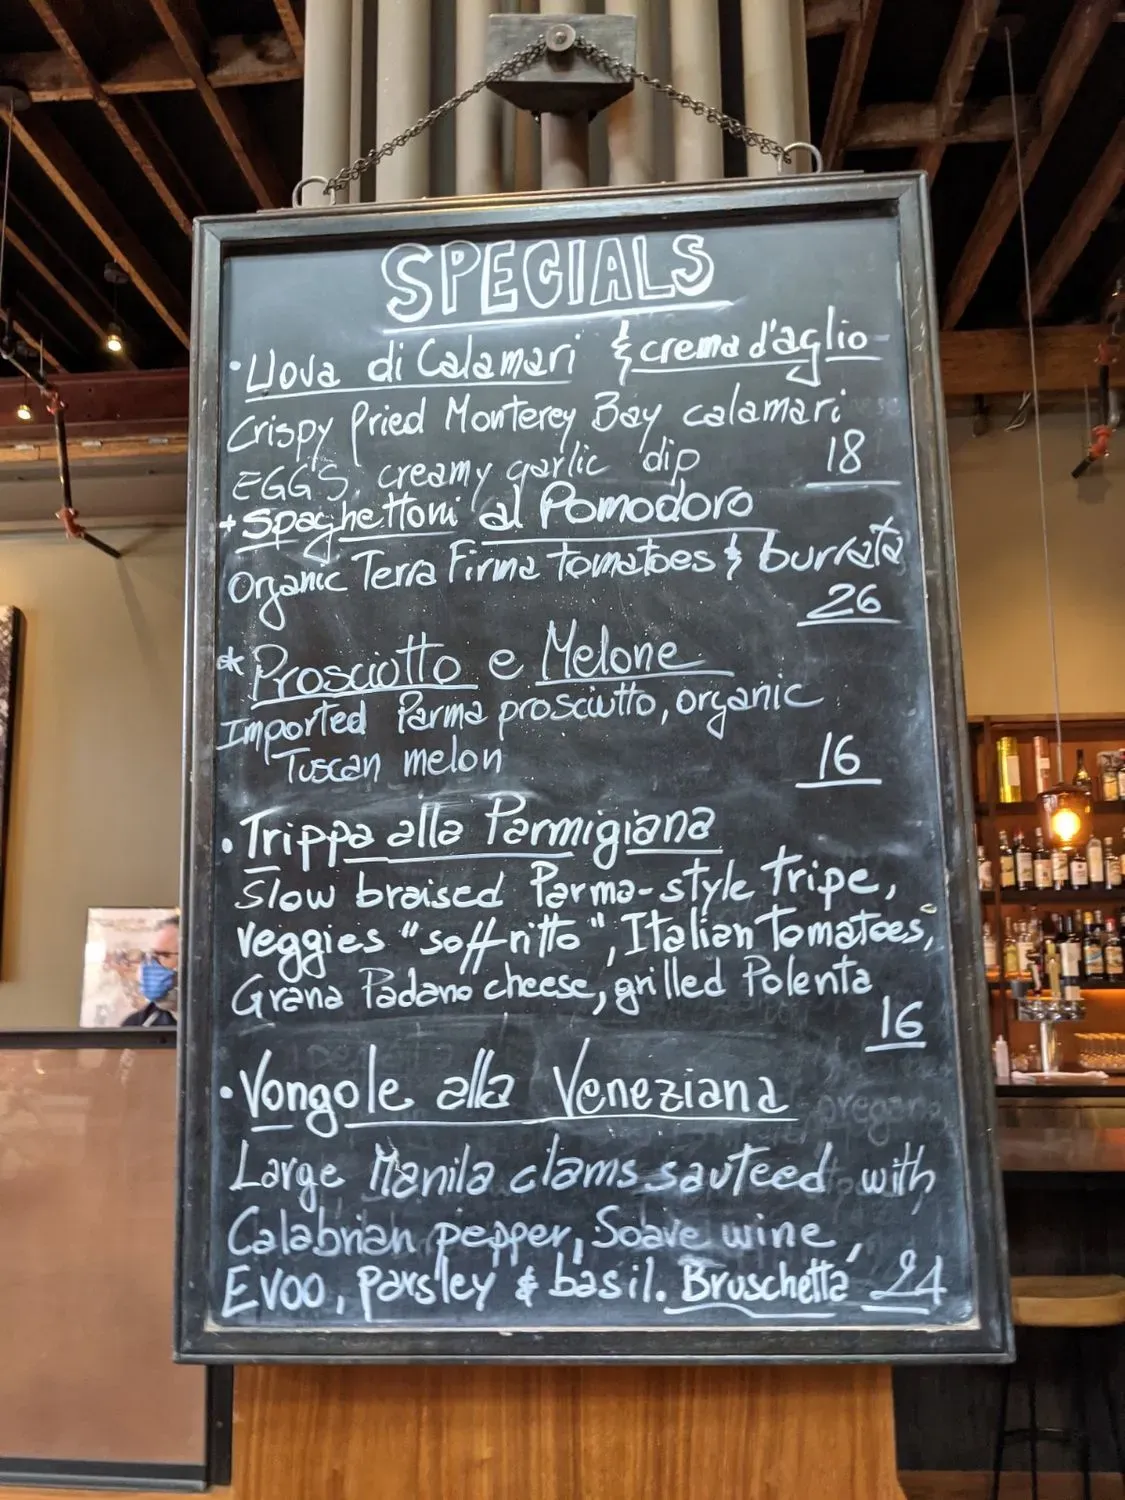 SPECIALS
•Uova di Calamari & crema d'aglio
Crispy Fried Monterey Bay calamari
EGGS, creamy garlic dip 18
+ Spaghettoni al Pomodoro
Organic Terra Firma tomatoes & burrata
26
* Prosciotto e Melone
Imported Parma prosciutto, organic
Tuscan melon 16
• Trippa alla Parmigiana
Slow braised Parma-style tripe,
veggies "soffritto", Italian Tomatoes,
Grana Padano cheese, grilled Polenta
16
• Vongole alla Veneziana
Large Manila clams sauteed with
Calabrian pepper, Soave wine,
Evoo, parsley & basil. Bruschetta 24